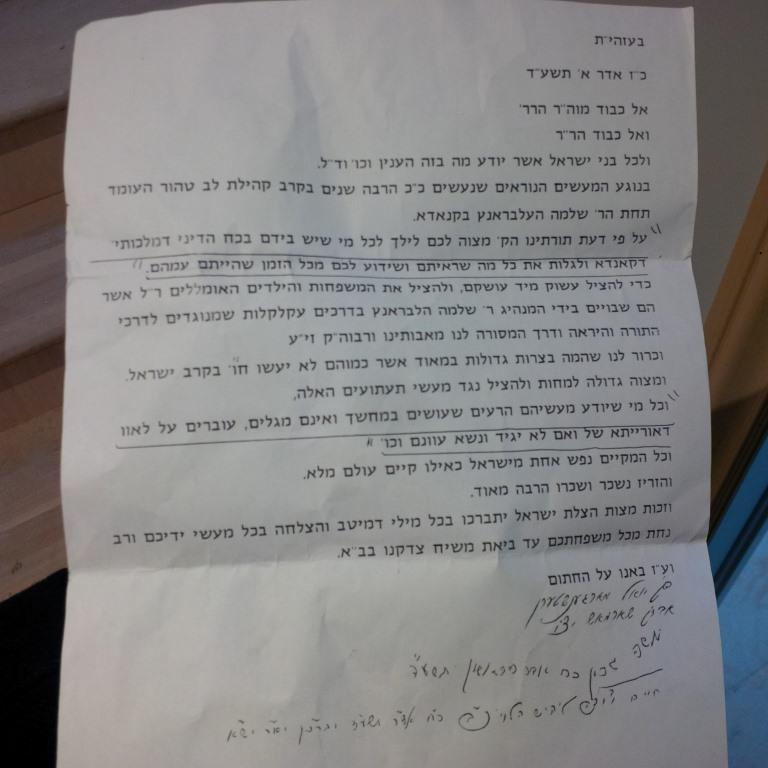 בעזהי״ת
כ״ז אדר א׳ תשע״ד
אל כבוד מוה״ר הרר׳
ואל כבוד הר״ר
ולכל בני ישראל אשר יודע מה בזה הענין וכו׳ וד״ל.
בנוגע המעשים הנוראים שנעשים כ״כ הרבה שנים בקרב קהילת לב טהור העומד
תחת הר׳ שלמה העלבראנץ בקנאדא.
״על פי דעת תורתינו הק׳ מצוה לכם לילך לכל מי שיש בידם בכח הדיני דמלכותי׳
דקאנדא ולגלות את כל מה שראיתם ושידוע לכם מכל הזמן שהייתם עמהם.״
כדי להציל עשוק מיד עושקם, ולהציל את המשפחות והילדים האומללים ר״ל אשר
הם שבויים בידי המנהיג ר׳ שלמה הלבראנץ בדרכים עקלקלות שמנוגדים לדרכי
התורה והיראה ודרך המסורה לנו מאבותינו ורבוה״ק זי״ע
וכרור לנו שהמה בצרות גדולות במאוד אשר כמוהם לא יעשו חו׳ בקרב ישראל.
ומצוה גדולה למחות ולהציל נגד מעשי תעתועים האלה,
״וכל מי שיודע מעשיהם הרעים שעושים במחשך ואינם מגלים, עוברים על לאוו
דאורייתא של ואם לא יגיד ונשא עוונם וכו׳״
וכל המקיים נפש אחת מישראל כאילו קיים עולם מלא.
והזריז נשכר ושכרו הרבה מאוד.
וזכות מצות הצלת ישראל יתברכו בכל מילי דמיטב והצלחה בכל מעשי ידיכם ורב
נחת מכל משפחתכם עד ביאת משיח צדקנו בב״א.
וע״ז באנו על החתום
יואל
משה
כח אדר תשע״ד
חיים